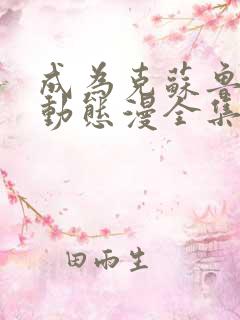 成為克蘇魯
動態漫全集
田雨生